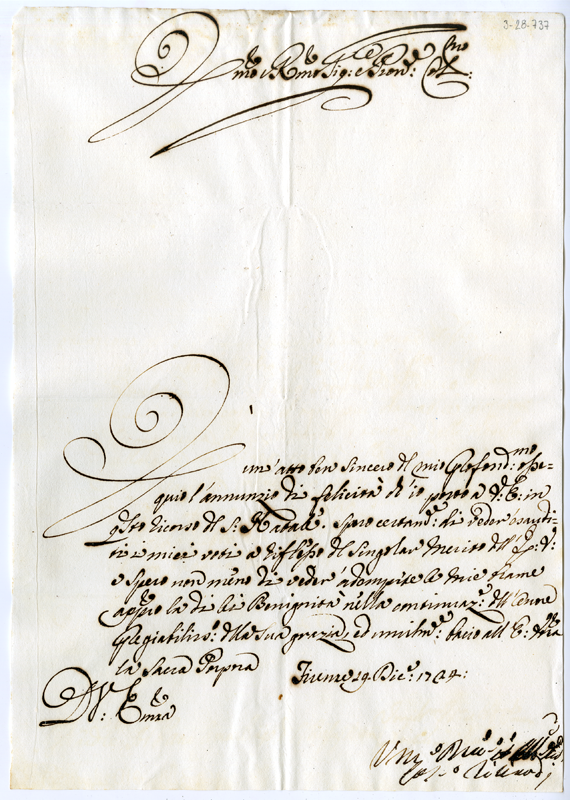 3-28-737
Emo e Rmo Sig:e e Pron: Col:mo
È un' atto ben sincero del mio profond:mo osse-
quio l'annunzio di felicità ch'io porto a V: E: in
q.sto ricorso del S: Natale. Spero certam:e di veder esaudi-
ti i miei voti a riflesso del singolar merito dell' E: V:
e spero non meno di veder' adempite le mie brame
appo la di lei Benignità nella continuaz:e dell'onore
pregiabiliss:o della sua grazia, ed umilm:e bacio all' E: V:ra
la Sacra Porpora Firenze 19. Dic:e 1744:
D V: Emza
Um:o